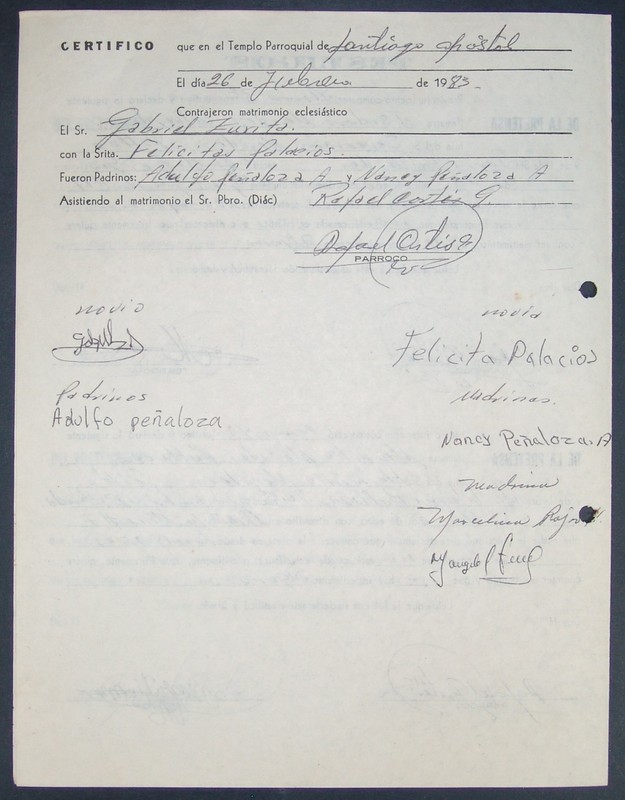 CERTIFICO que en el Templo Parroquial de Santiago apóstol
El día 26 de Febrero de 1983.
Contrajeron matrimonio eclesiástico
El Sr. Gabriel Zurita.
con la Srita. Felicitas Palacios.
Fueron Padrinos: Adulfo Peñaloza A y Nancy Peñaloza A
Asistiendo al matrimonio el Sr. Pbro. (Diác) Rafael Cortés G.
Rafael Cortés G
PARROCO
novio novia
Felicita Palacios
Padrinos Madrinas.
Adulfo peñaloza
Nancy Peñaloza. A
madrina
Marcelina